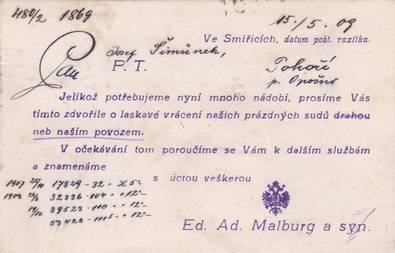 480/2 1869 15./5. 09
Ve Smiřicích, datum pošt. razítka.
Josef Šimůnek,
Pan P. T. Pohoří
p. Opočno
Jelikož potřebujeme nyní mnoho nádobí, prosíme Vás
tímto zdvořile o laskavé vrácení našich prázdných sudů drahou
neb naším povozem.
V očekávání tom poroučíme se Vám k dalším službám
a znamenáme
s úctou veškerou
1907 17829 - 32 = K 5'-
1908 32336 - 104 = " 12'-
39523 - 110 = " 12'-
Ed. Ad. Malburg a syn.